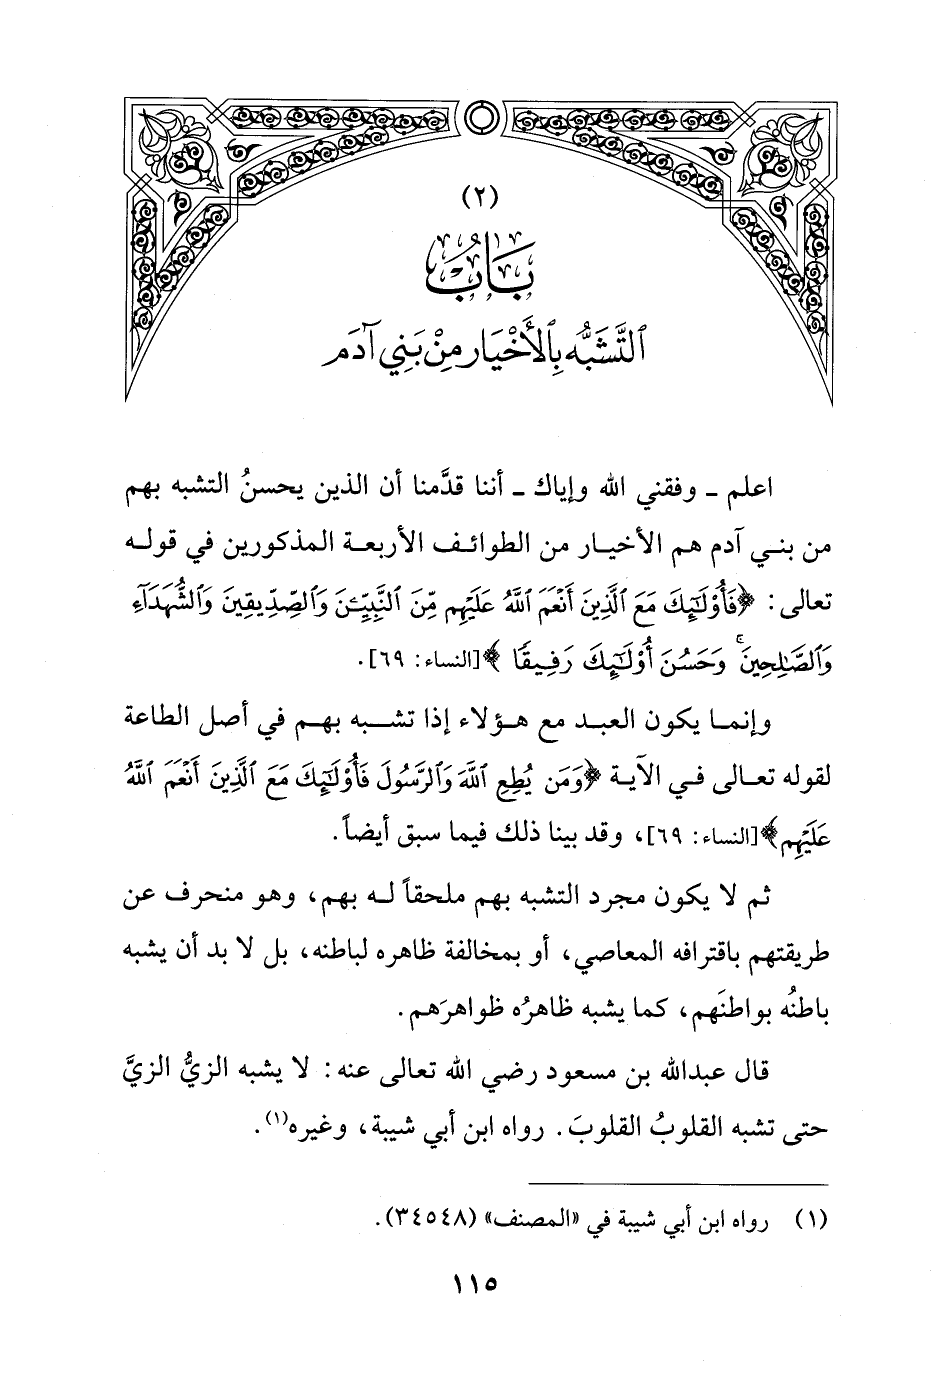 (٢)
بَابُ
ٱلتَّشَبُّه بِٱلأَخْيَار مِنْ بَنِي آدَمَ
اعلم ـ وفقني الله وإياك ـ أننا قدَّمنا أن الذين يحسنُ التشبه بهم
من بني آدم هم الأخيار من الطوائف الأربعة المذكورين في قوله
تعالى: ﴿فَأُوْلَٰٓئِكَ مَعَ ٱلَّذِينَ أَنْعَمَ ٱللَّهُ عَلَيْهِم مِّنَ ٱلنَّبِيِّـۧنَ وَٱلصِّدِّيقِينَ وَٱلشُّهَدَآءِ
وَٱلصَّٰلِحِينَ ۚ وَحَسُنَ أُوْلَٰٓئِكَ رَفِيقًا ﴾ [النساء: ٦٩].
وإنما يكون العبد مع هؤلاء إذا تشبه بهم في أصل الطاعة
لقوله تعالى في الآية ﴿وَمَن يُطِعِ ٱللَّهَ وَٱلرَّسُولَ فَأُوْلَٰٓئِكَ مَعَ ٱلَّذِينَ أَنْعَمَ ٱللَّهُ
عَلَيْهِم﴾ [النساء: ٦٩]، وقد بينا ذلك فيما سبق أيضاً.
ثم لا يكون مجرد التشبه بهم ملحقاً له بهم، وهو منحرف عن
طريقتهم باقترافه المعاصي، أو بمخالفة ظاهره لباطنه، بل لا بد أن يشبه
باطنُه بواطنَهم، كما يشبه ظاهرُه ظواهرَهم.
قال عبدالله بن مسعود رضي الله تعالى عنه: لا يشبه الزيُّ الزيَّ
حتى تشبه القلوبُ القلوبَ. رواه ابن أبي شيبة، وغيره(١).
(١) رواه ابن أبي شيبة في «المصنف» (٣٤٥٤٨).
١١٥